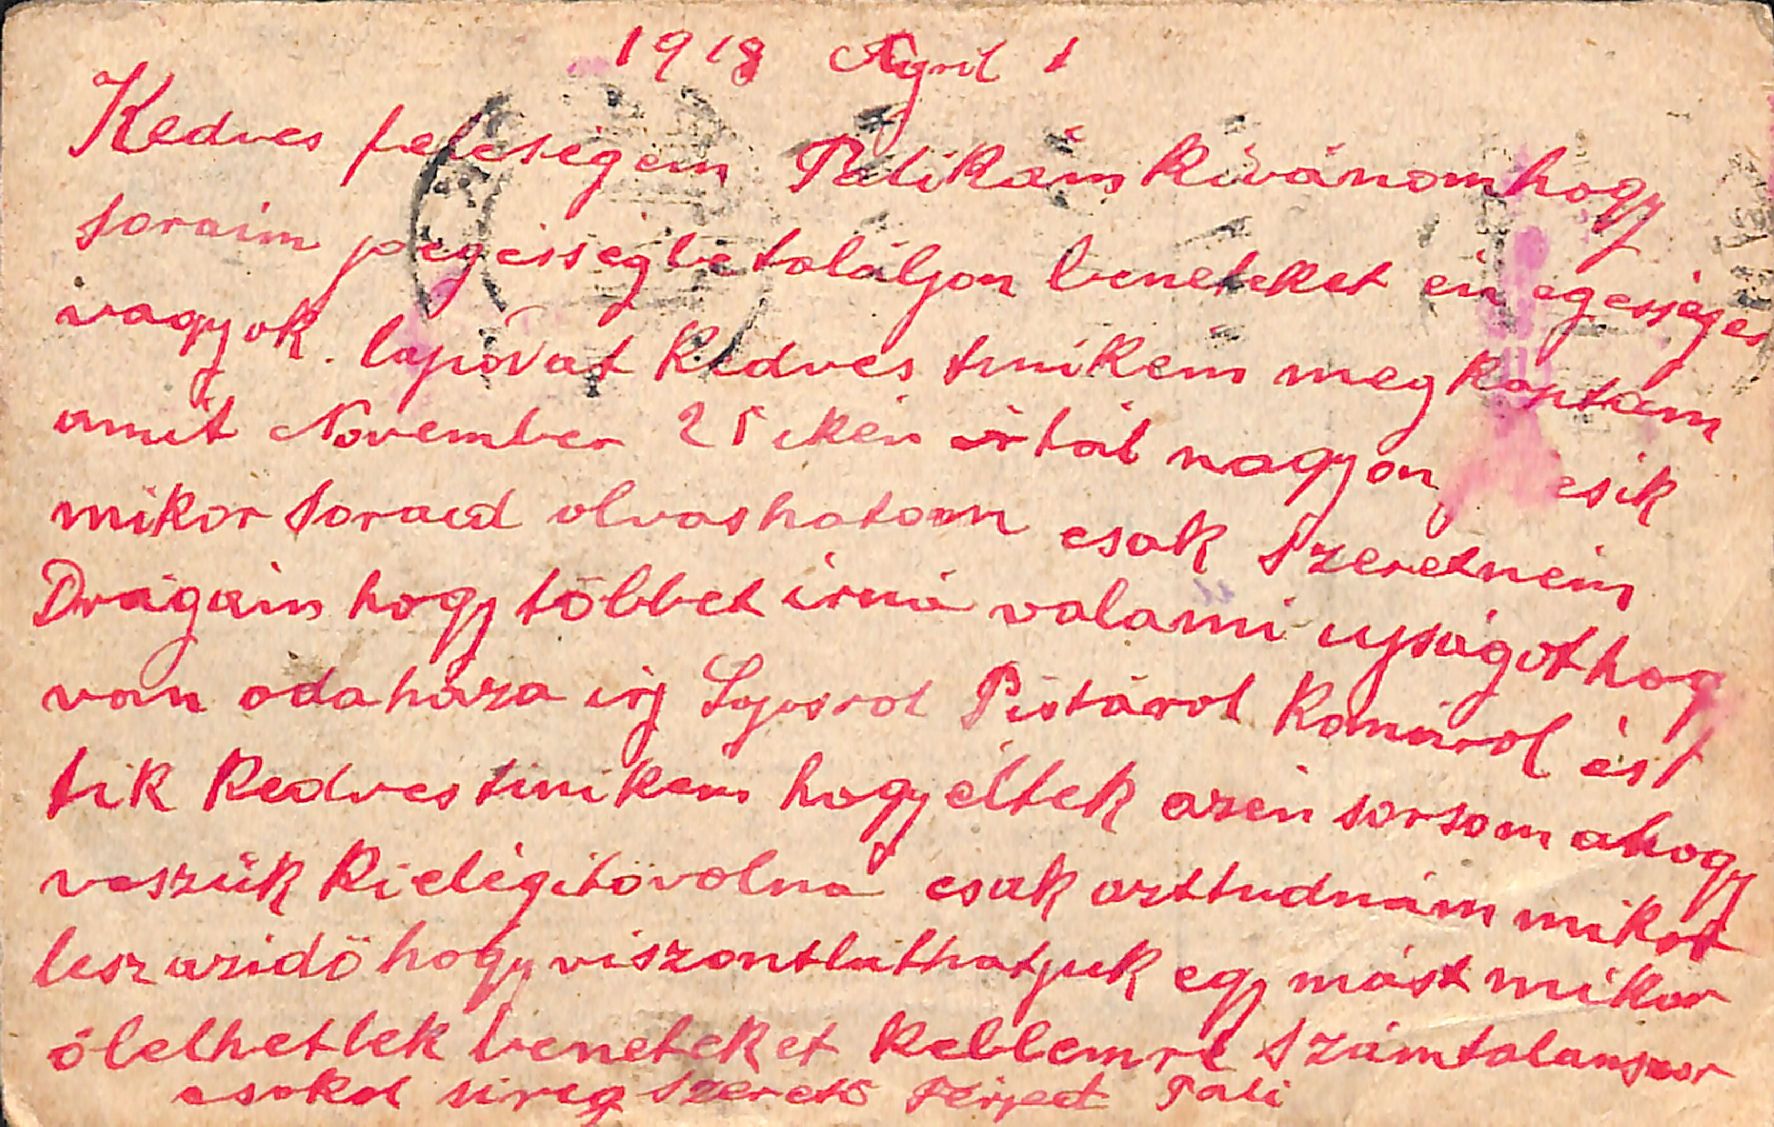 1918 April 1
Kedves feleségem Palikám kivánom hogy
soraim jó egésségbe találjon beneteket én egésséges
vagyok. lapodat kedves tinikém meg kaptam
amit November 25 ikén irtál nagyon esik
mikor soraid olvashatom csak szeretném
Drágám hogy többet irná valami ujságot hogy
van odahaza irj Lajosrol Pistárol Komárol és
tik kedves tinikém hogy éltek azén sorsom ahogy
veszük kielégitövolna csak azttudnám mikor
lesz azidö hogy viszontláthatjuk egy mást mikor
ölelhetlek beneteket keblemre számtalanszor
csokol sirig szeretö férjed Pali